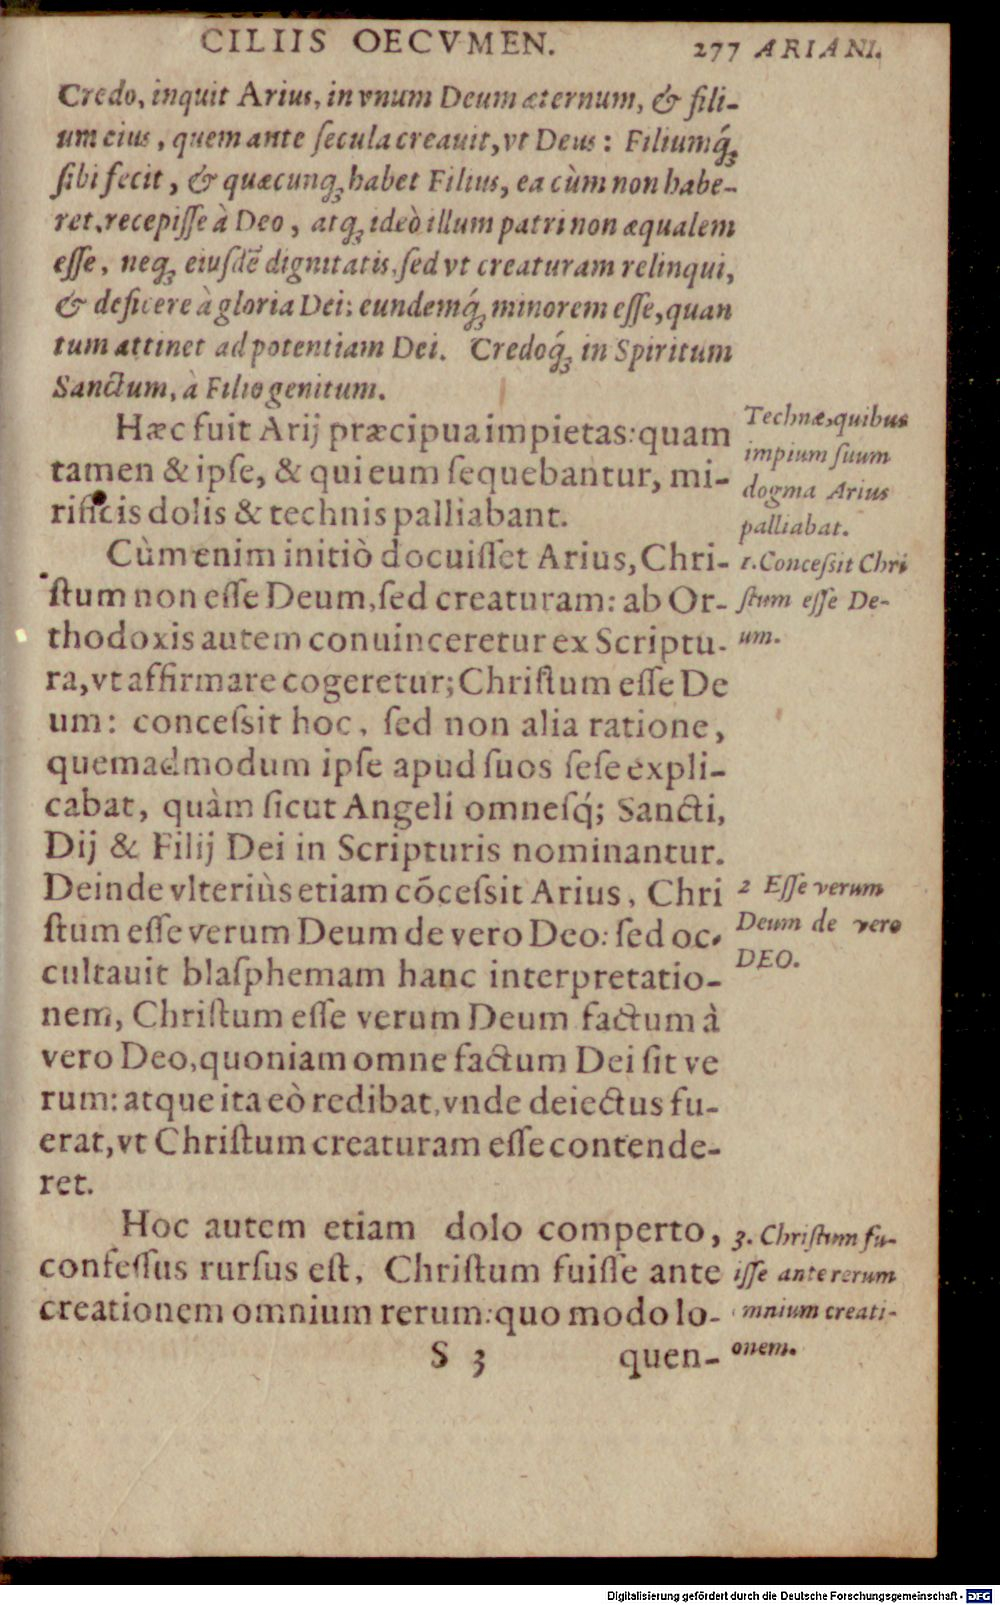 CILIIS OECVMEN. 277 ARIANI.
Credo, inquit Arius, in vnum Deum æternum, & fili-
um eius, quem ante secula creauit, vt Deus: Filiumq́ꝫ
sibi fecit, & quæcunqꝫ habet Filius, ea cùm non habe-
ret, recepisse à Deo, atqꝫ ideò illum patri non æqualem
esse, neqꝫ eiusdē dignitatis, sed vt creaturam relinqui,
& deficere à gloria Dei: eundemq́ꝫ minorem esse, quan
tum attinet ad potentiam Dei. Credoq́ꝫ in Spiritum
Sanctum, à Filio genitum.
Hæc fuit Arij præcipua impietas: quam
tamen & ipse, & qui eum sequebantur, mi-
rificis dolis & technis palliabant.
Technæ, quibus
impium suum
dogma Arius
palliabat.
Cùm enim initiò docuisset Arius, Chri-
stum non esse Deum, sed creaturam: ab Or-
thodoxis autem conuinceretur ex Scriptu-
ra, vt affirmare cogeretur; Christum esse De
um: concessit hoc, sed non alia ratione,
quemadmodum ipse apud suos sese expli-
cabat, quàm sicut Angeli omnesq́; Sancti,
Dij & Filij Dei in Scripturis nominantur.
1. Concessit Chri
stum esse De-
um.
Deinde vlteriùs etiam cōcessit Arius, Chri
stum esse verum Deum de vero Deo: sed oc-
cultauit blasphemam hanc interpretatio-
nem, Christum esse verum Deum factum à
vero Deo, quoniam omne factum Dei sit ve
rum: atque ita eò redibat, vnde deiectus fu-
erat, vt Christum creaturam esse contende-
ret.
2 Esse verum
Deum de vero
DEO.
Hoc autem etiam dolo comperto,
confessus rursus est, Christum fuisse ante
creationem omnium rerum: quo modo lo-
3. Christum fu-
isse ante rerum
mnium creati-
onem.
S 3 quen-
Digitalisierung gefördert durch die Deutsche Forschungsgemeinschaft - DFG